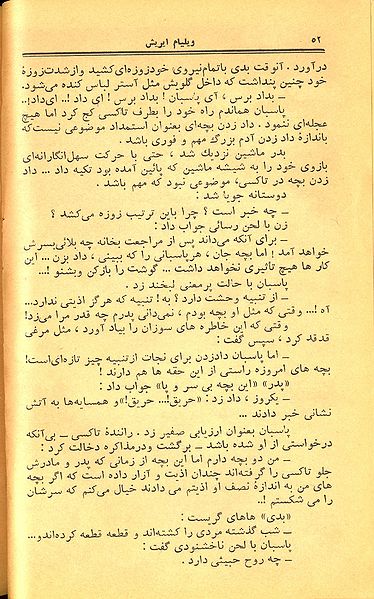 ۵۲
ویلیام ایریش
درآورد. آنوقت بدی باتمام نیروی خودزوزه‌ای کشید و ازشدت زوزهٔ
خود چنین پنداشت که داخل گلویش مثل آستر لباس کنده می‌شود.
ــ بداد برس، آی پاسبان! بداد برس! ای داد!.. ای داد!..
پاسبان هماندم راه خود را بطرف تاکسی کج کرد اما هیچ
عجله‌ای ننمود. داد زدن بچه‌ای بعنوان استمداد موضوعی نیست که
باندازهٔ داد زدن آدم بزرگ مهم و فوری باشد.
بدر ماشین نزدیک شد، حتی با حرکت سهل‌انگارانه‌ای
بازوی خود را به شیشه ماشین که پائین آمده بود تکیه داد ... داد
زدن بچه در تاکسی، موضوعی نبود که مهم باشد.
دوستانه جویا شد:
ــ چه خبر است؟ چرا باین ترتیب زوزه می‌کشد؟
زن با لحن رسائی جواب داد:
ــ برای آنکه می‌داند پس از مراجعت بخانه چه بلائی بسرش
خواهد آمد! اما بچه جان، هرپاسبانی را که ببینی، داد بزن ... این
کار ها هیچ تاثیری نخواهد داشت ... گوشت را بازکن وبشنو!...
پاسبان با حالت پرمعنی لبخند زد.
ــ از تنبیه وحشت دارد؟ به! تنبیه که هرگز اذیتی ندارد...
آه!... وقتی که مثل او بچه بودم، نمی‌دانی پدرم چه قدر مرا می‌زد!
وقتی که این خاطره های سوزان را بیاد آورد، مثل مرغی
قدقد کرد، سپس گفت:
ــ اما پاسبان دادزدن برای نجات ازتنبیه چیز تازه‌ای‌است!
بچه های امروزه راستی از این حقه ها هم دارند!
«پدر» «این بچه بی سر و پا» جواب داد:
ــ یکروز، داد زد: «حریق!... حریق!» و همسایه‌ها به آتش
نشانی خبر دادند ...
پاسبان بعنوان ارزیابی صفیر زد. رانندهٔ تاکسی ــ بی‌آنکه
درخواستی از او شده باشد ــ برگشت ودرمذاکره دخالت کرد:
ــ من دو بچه دارم اما این بچه از زمانی که پدر و مادرش
جلو تاکسی را گرفته‌اند چندان اذیت و آزار داده است که اگر بچه
های من به اندازهٔ نصف او اذیتم می دادند خیال می‌کنم که سرشان
را می شکستم!..
«بدی» های‌های گریست:
ــ شب گذشته مردی را کشته‌اند و قطعه قطعه کرده‌اندو...
پاسبان با لحن ناخشنودی گفت:
ــ چه روح خبیثی دارد.